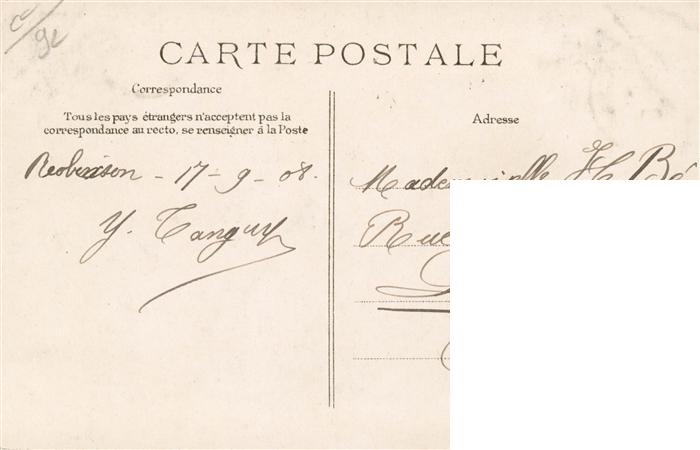 CARTE POSTALE
Correspondance
Tous les pays étrangers n'acceptent pas la
correspondance au recto, se renseigner à la Poste
Robinson - 17 - 9 - 08.
Y. Tanguy
Adresse
Mademoiselle H
Rue